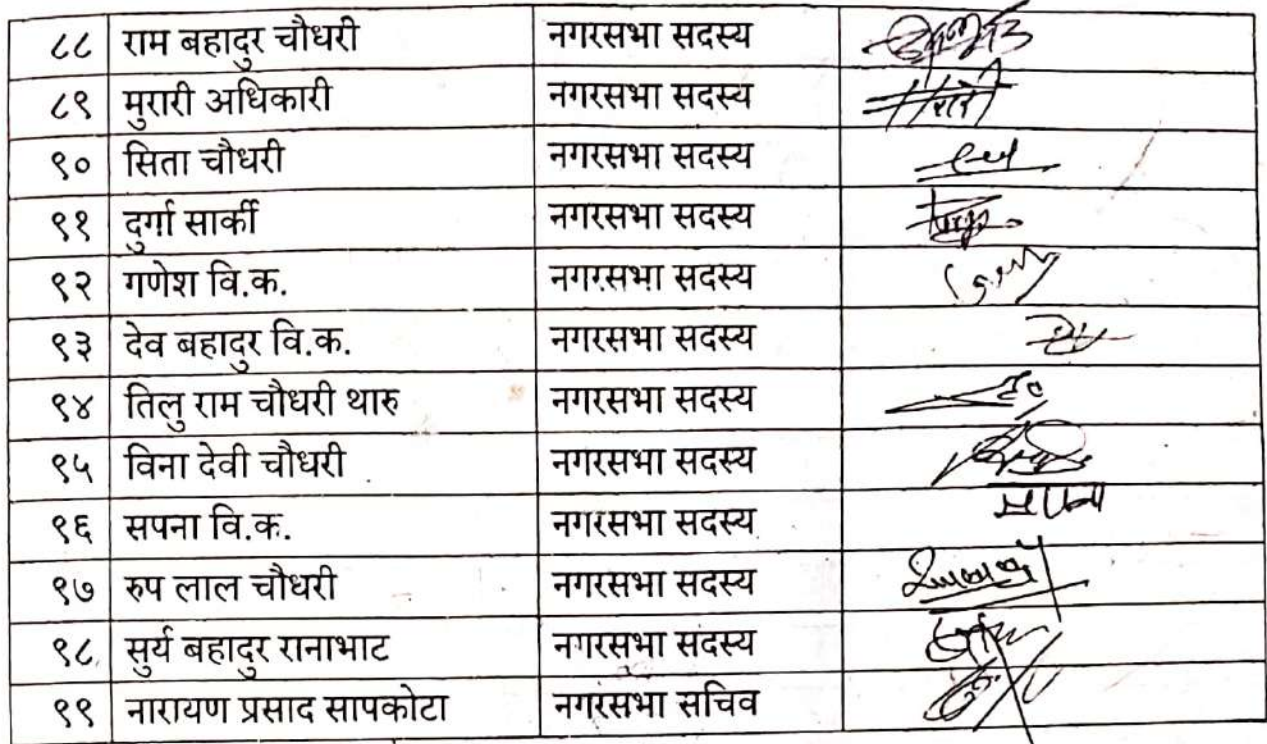 ८८ राम बहादुर चौधरी नगरसभा सदस्य
८९ मुरारी अधिकारी नगरसभा सदस्य
९० सिता चौधरी नगरसभा सदस्य
९१ दुर्गा सार्की नगरसभा सदस्य
९२ गणेश वि.क. नगरसभा सदस्य
९३ देव बहादुर वि.क. नगरसभा सदस्य
९४ तिलु राम चौधरी थारु नगरसभा सदस्य
९५ विना देवी चौधरी नगरसभा सदस्य
९६ सपना वि.क. नगरसभा सदस्य
९७ रुप लाल चौधरी नगरसभा सदस्य
९८ सुर्य बहादुर रानाभाट नगरसभा सदस्य
९९ नारायण प्रसाद सापकोटा नगरसभा सचिव